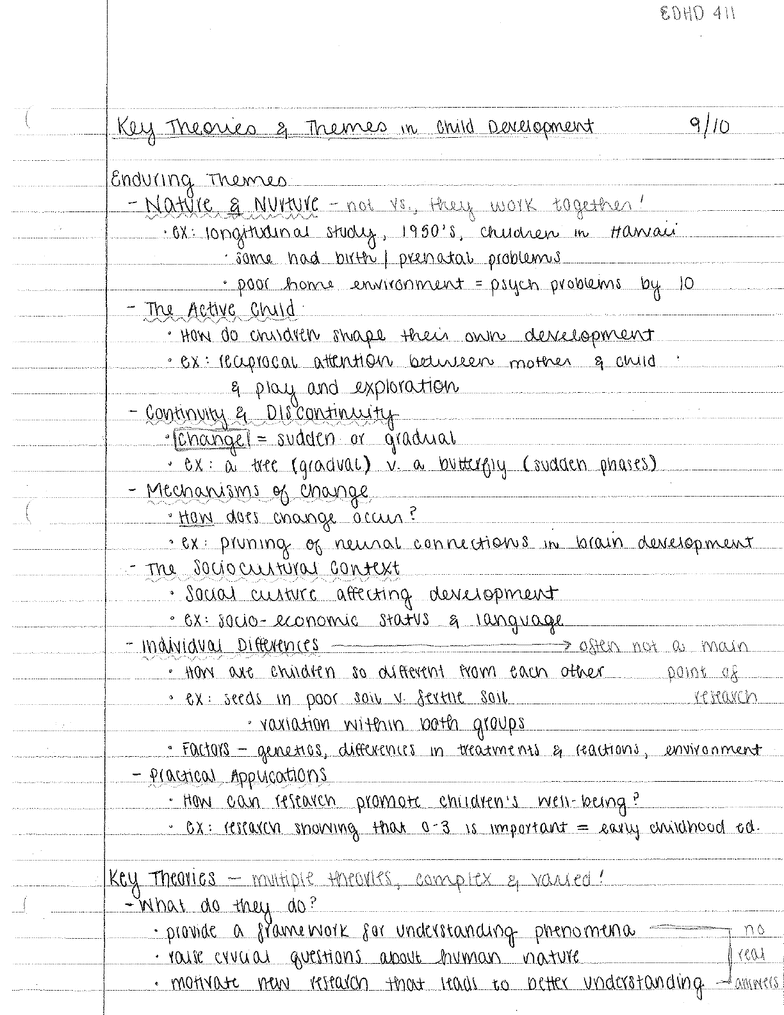 EDHD 411
Key Theories & Themes in Child Development 9/10
Enduring Themes
- Nature & Nurture - not vs., they work together!
· ex: longitudinal study, 1950's, children in Hawaii
· some had birth / prenatal problems
· poor home environment = psych problems by 10
- The Active Child
· How do children shape their own development
· ex: reciprocal attention between mother & child
& play and exploration
- Continuity & Discontinuity
· change = sudden or gradual
· ex: a tree (gradual) v. a butterfly (sudden phases)
- Mechanisms of Change
· How does change occur?
· ex: pruning of neural connections in brain development
- The Sociocultural Context
· Social culture affecting development
· ex: socio-economic status & language
- Individual Differences → often not a main
· How are children so different from each other point of
· ex: seeds in poor soil v. fertile soil research
· variation within both groups
· Factors - genetics, differences in treatments & reactions, environment
- Practical Applications
· How can research promote children's well-being?
· ex: research showing that 0-3 is important = early childhood ed.
Key Theories - multiple theories, complex & varied!
- What do they do?
· provide a framework for understanding phenomena no
· raise crucial questions about human nature real
· motivate new research that leads to better understanding answers